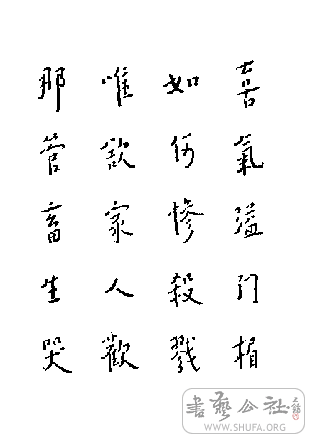 喜氣溢門楣
如何慘殺戮
唯欲家人歡
那管畜生哭
書藝公社
WWW.SHUFA.ORG